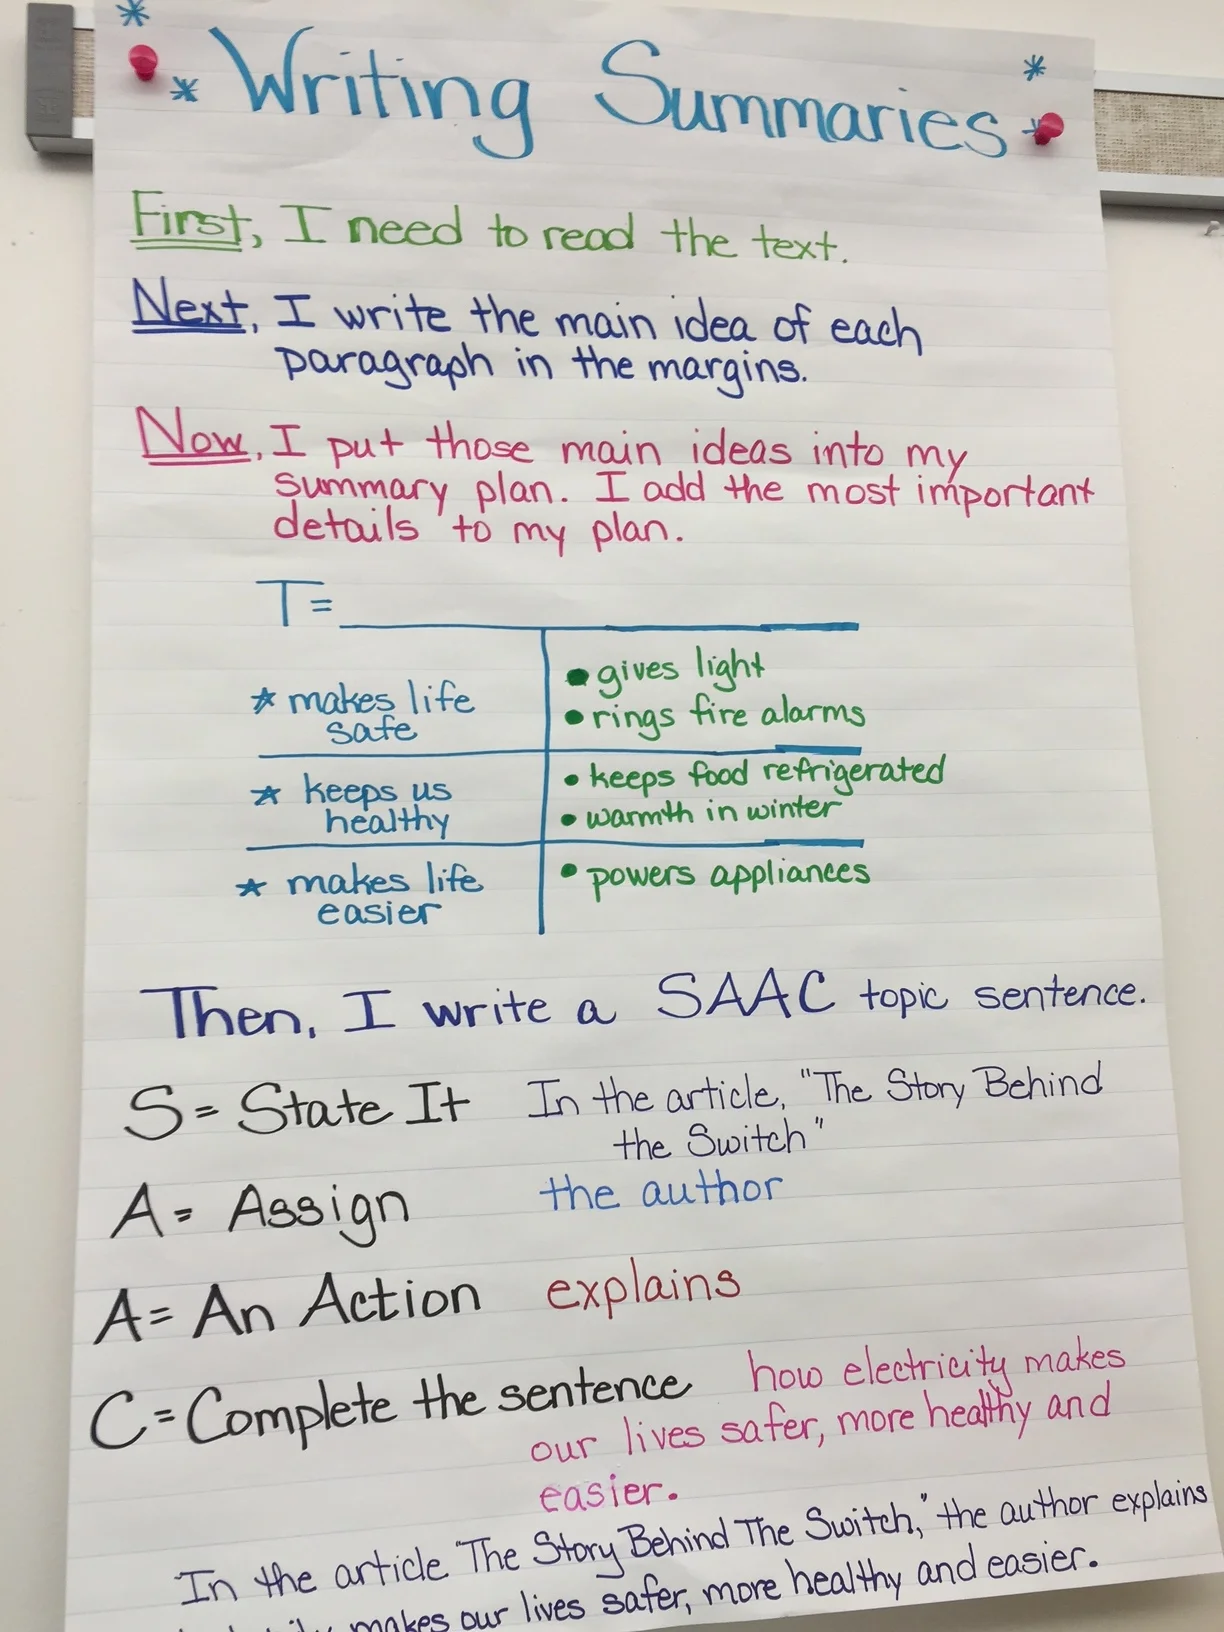 Writing Summaries
First, I need to read the text.
Next, I write the main idea of each
paragraph in the margins.
Now, I put those main ideas into my
summary plan. I add the most important
details to my plan.
T=
makes life
safe
• gives light
• rings fire alarms
keeps us
healthy
• keeps food refrigerated
• warmth in winter
makes life
easier
• powers appliances
Then, I write a SAAC topic sentence.
S = State It In the article, "The Story Behind
the Switch"
A = Assign the author
A = An Action explains
C = Complete the sentence how electricity makes
our lives safer, more healthy and
easier.
In the article "The Story Behind The Switch," the author explains
makes our lives safer, more healthy and easier.